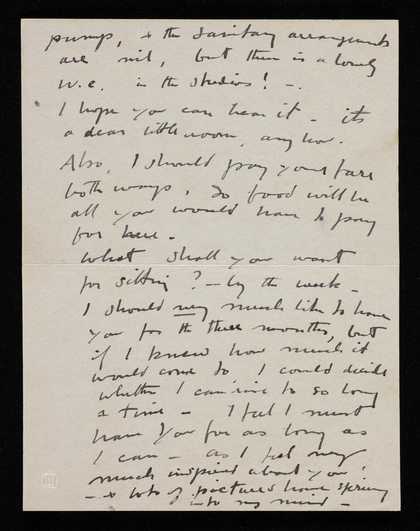 pump, & the sanitary arrangements
are nil, but there is a lovely
w.c. in the studios! -.
I hope you can bear it - its
a dear little room, any how.
Also, I should pay your fare
both ways, so food will be
all you would have to pay
for here -
What shall you want
for sitting? - by the week -
I should very much like to have
you for the three months, but
if I knew how much it
would come to I could decide
whether I can rise to so long
a time - I feel I must
have you for as long as
I can - as I feel very
much inspired about you!
- & lots of pictures have sprung
into my mind -